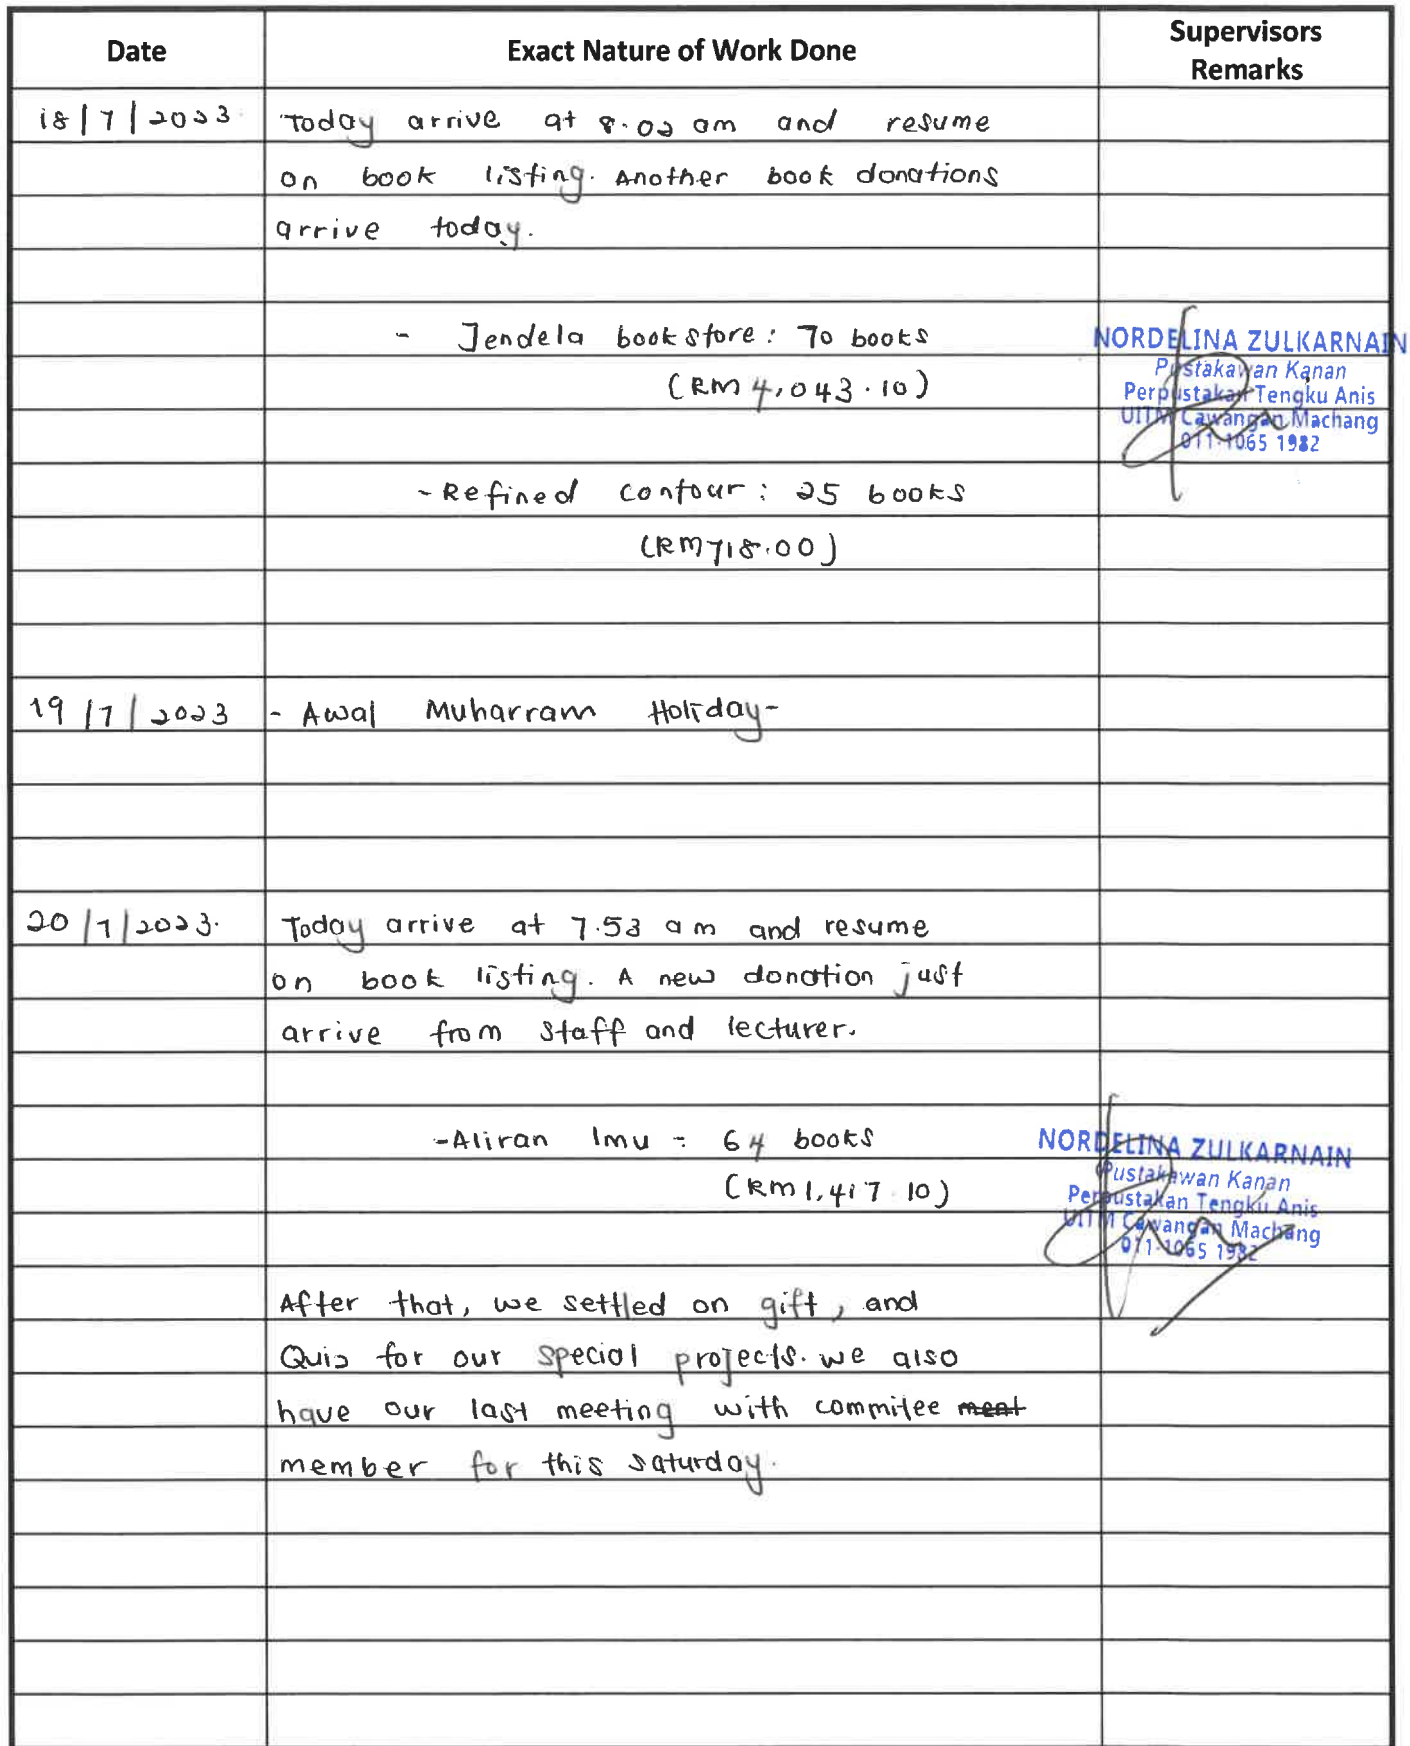 Date Exact Nature of Work Done Supervisors Remarks
18/7/2023 Today arrive at 8.02 am and resume
on book listing. Another book donations
arrive today.
- Jendela bookstore: 70 books
(RM 4,043.10)
NORDELINA ZULKARNAIN
Pustakawan Kanan
Perpustakan Tengku Anis
UITM Cawangan Machang
011-1065 1982
- Refined contour: 25 books
(RM718.00)
19/7/2023 - Awal Muharram Holiday-
20/7/2023. Today arrive at 7.53 am and resume
on book listing. A new donation just
arrive from staff and lecturer.
-Aliran Imu - 64 books
(RM1,417.10)
NORDELINA ZULKARNAIN
Pustakawan Kanan
Perpustakan Tengku Anis
UITM Cawangan Machang
011-1065 1982
After that, we settled on gift, and
Quiz for our special projects. we also
have our last meeting with commitee ment
member for this saturday.